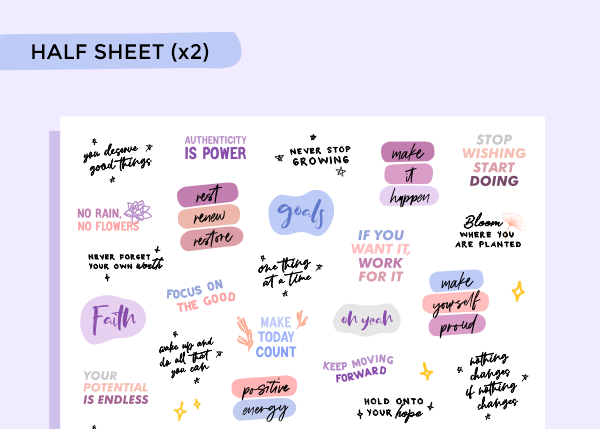 HALF SHEET (x2)
you deserve
good things
AUTHENTICITY
IS POWER
NEVER STOP
GROWING
make
it
happen
STOP
WISHING
START
DOING
NO RAIN,
NO FLOWERS
rest
renew
restore
goals
Bloom
WHERE YOU
ARE PLANTED
NEVER FORGET
YOUR OWN worth
one thing
at a time
IF YOU
WANT IT,
WORK
FOR IT
make
yourself
proud
Faith
FOCUS ON
THE GOOD
MAKE
TODAY
COUNT
oh yeah
wake up and
do all that
you can
KEEP MOVING
FORWARD
nothing
changes
if nothing
changes
YOUR
POTENTIAL
IS ENDLESS
positive
energy
HOLD ONTO
YOUR hope